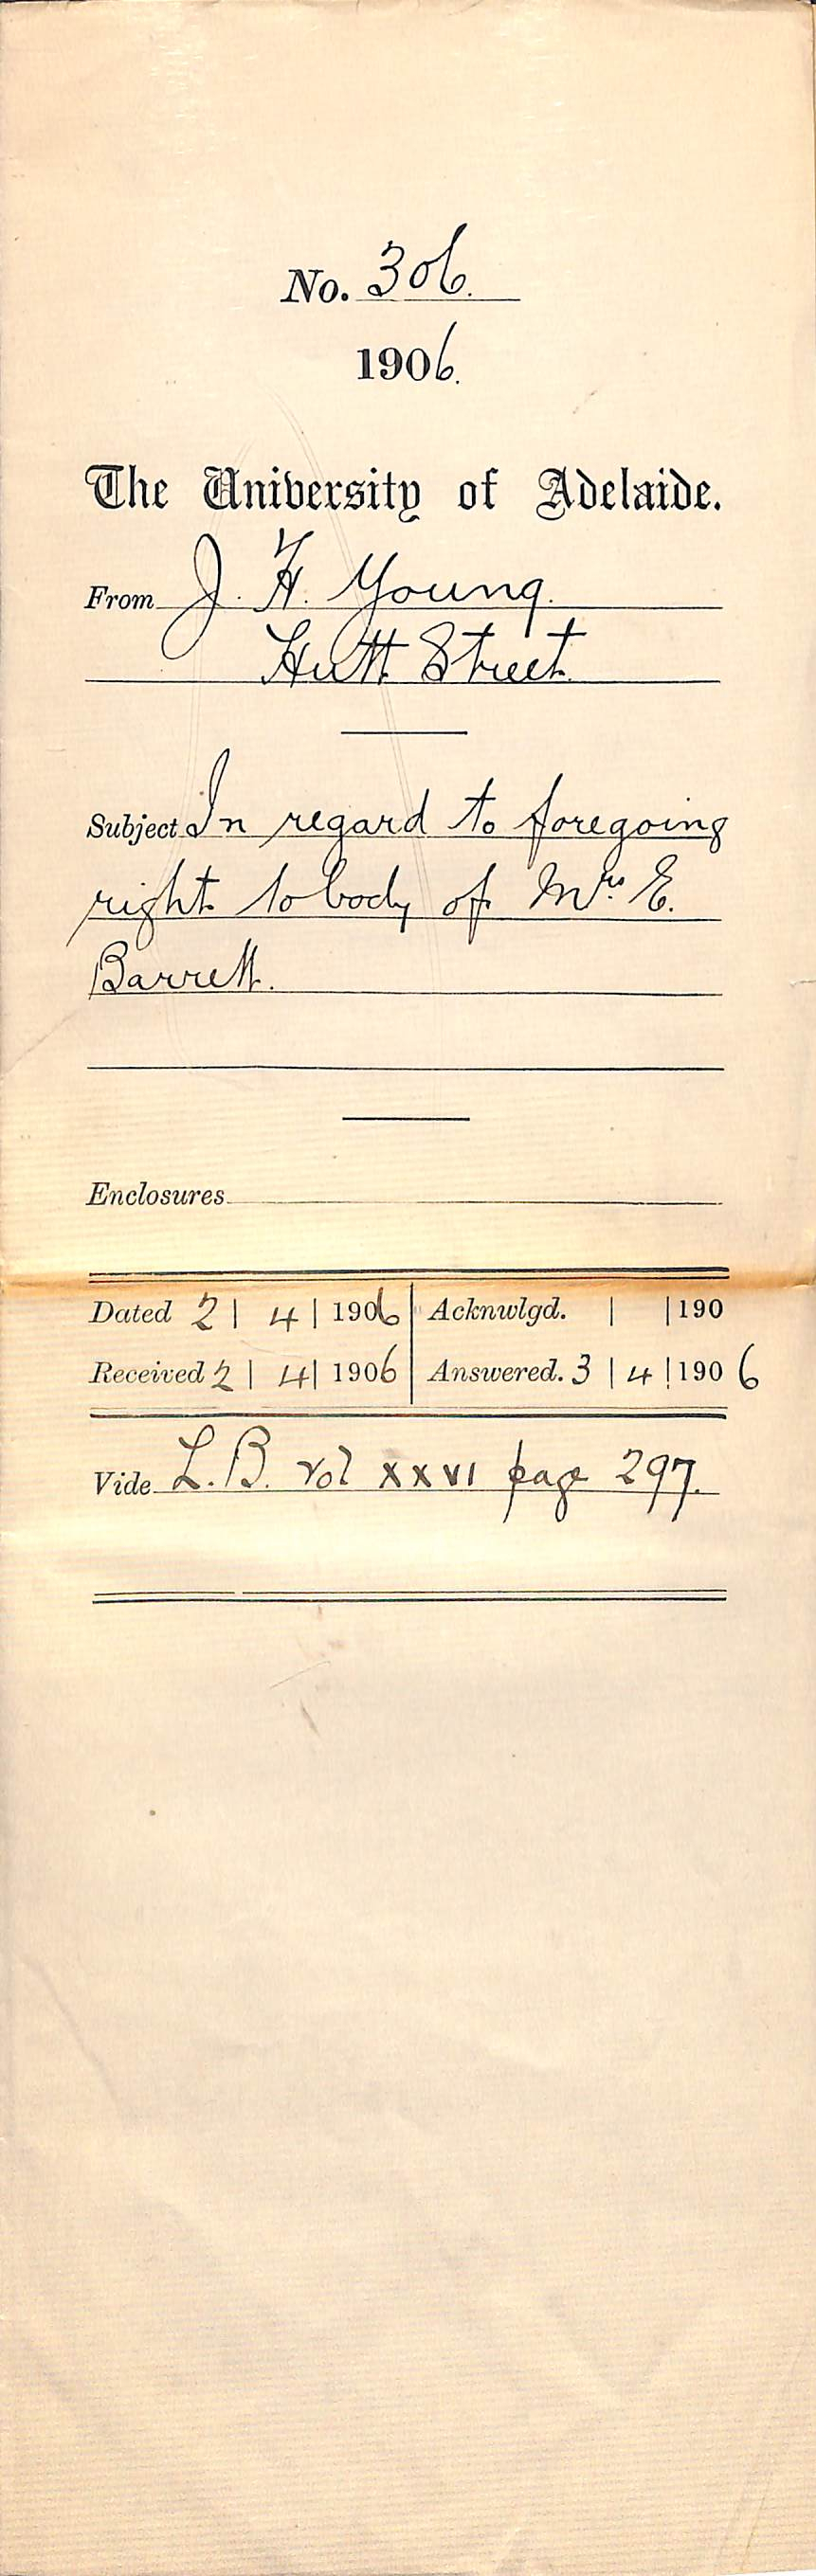 No. 306.
1906.
The University of Adelaide.
From J. H. Young.
Hutt Street.
Subject In regard to foregoing
right to body of Mrs. E.
Barrett.
Enclosures
Dated 2 | 4 | 1906 Acknwlgd. | | 190
Received 2 | 4 | 1906 Answered. 3 | 4 | 1906
Vide L.B. vol XXVI page 297.